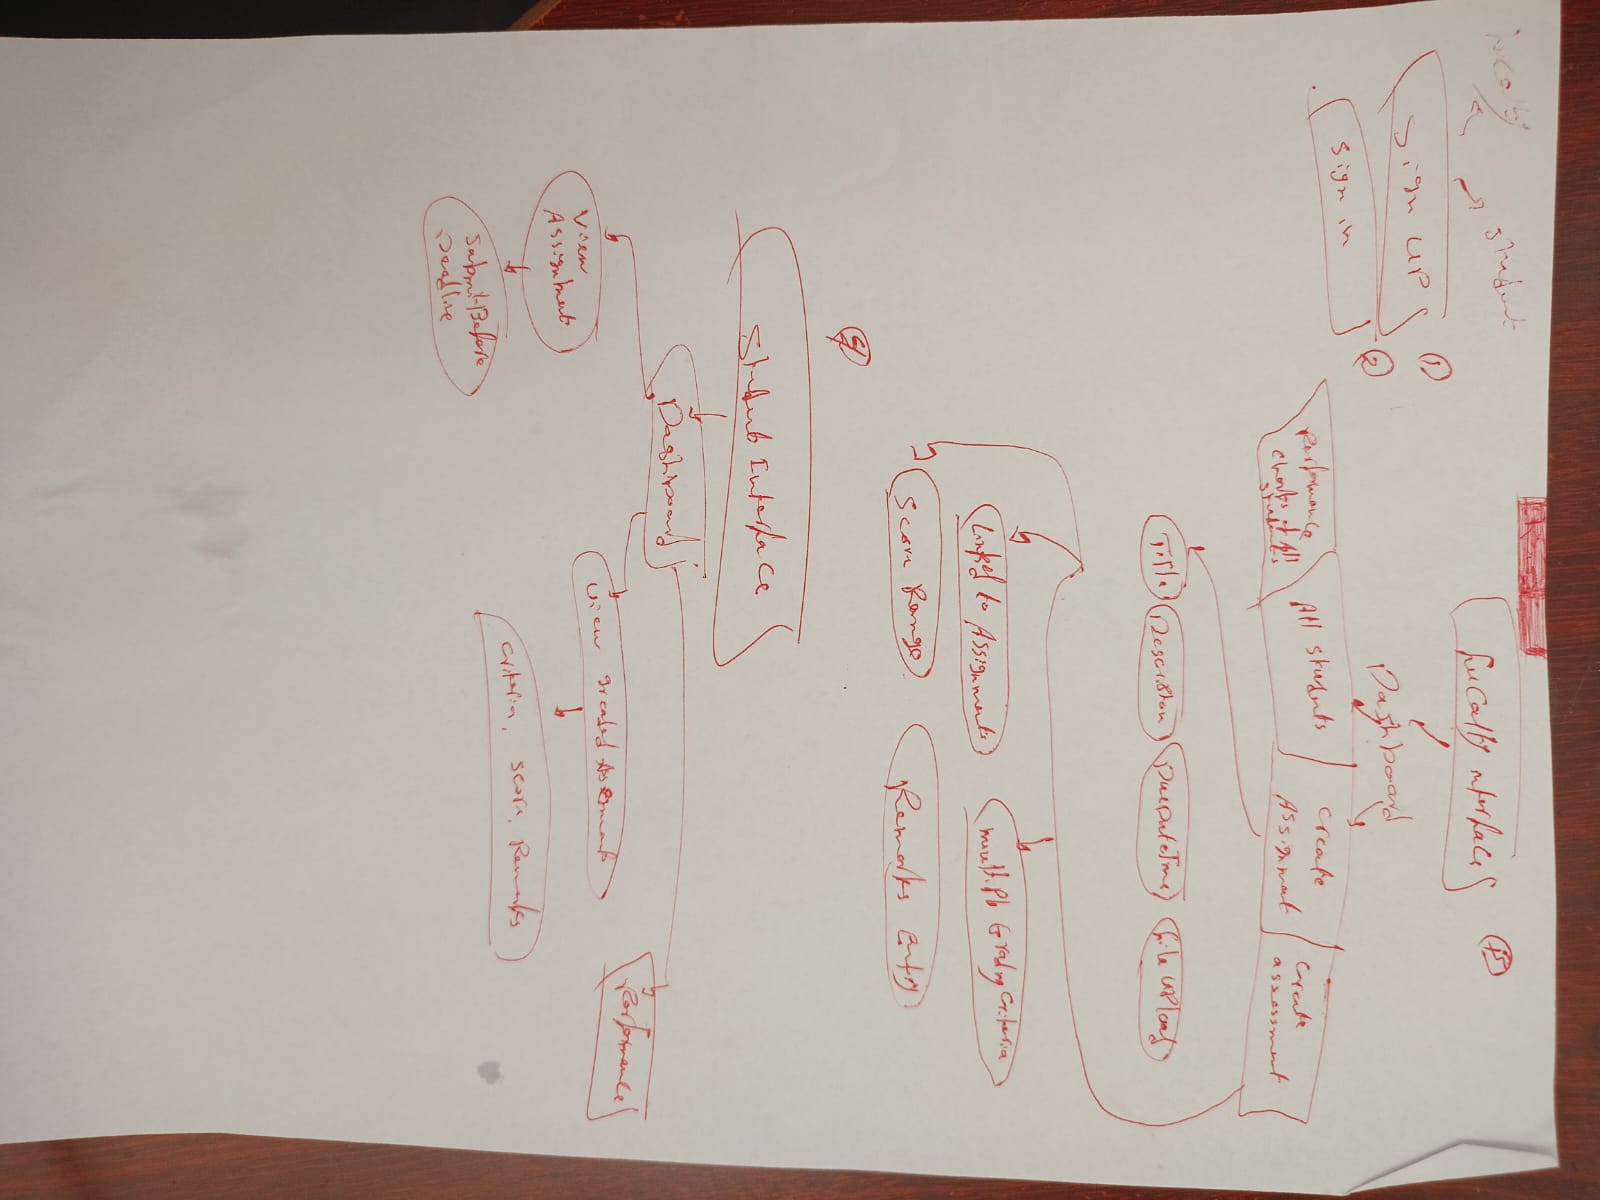 faculty
student
Sign UP
①
Sign in
②
faculty interface
Dashboard
Performance
charts of All
students
All students
create
Assignment
create
assessment
Title
Description
Due Date Time
File Upload
Linked to Assignments
Multiple Grading Criteria
Score Range
Remarks Entry
④
Student Interface
Dashboard
View
Assignment
Submit Before
Deadline
View graded Assignments
criteria, score, Remarks
Performance